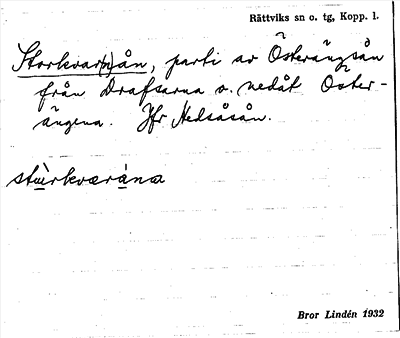 Rättviks sn o. tg, Kopp. l.
Storkvar(n)ån, parti av Österängsån
från Drafsarna o. nedåt Öster-
ängena. Jfr Nedsåsån.
Bror Lindén 1932